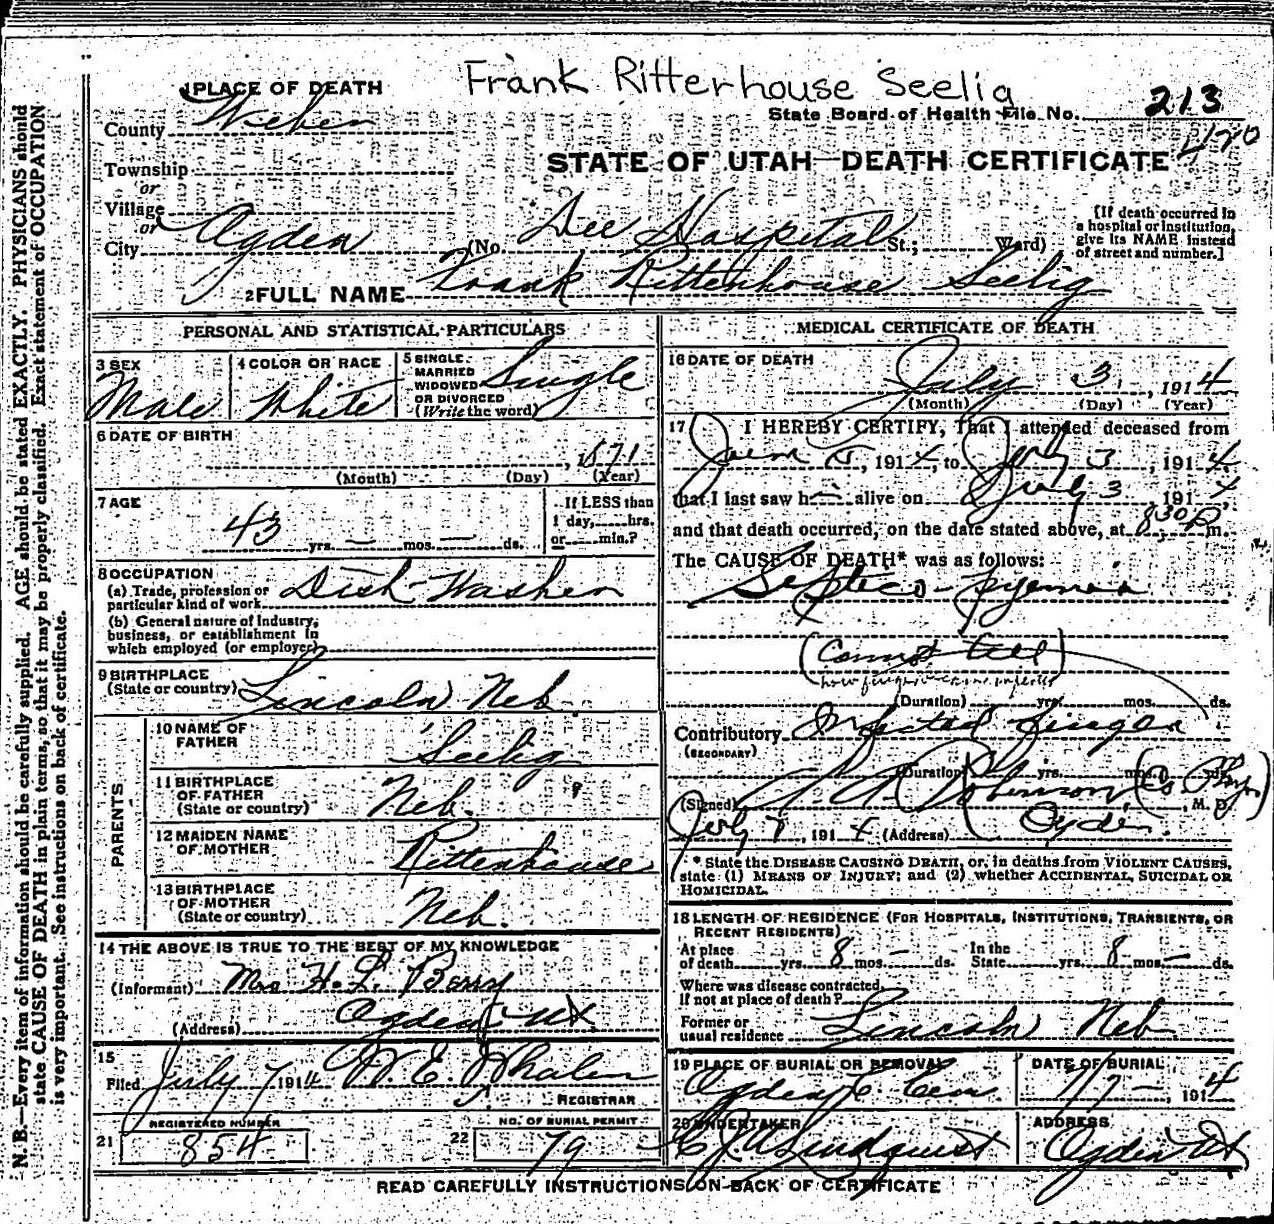 Frank Ritterhouse Seelig
1 PLACE OF DEATH
State Board of Health File No. 213
County Weber
470
STATE OF UTAH—DEATH CERTIFICATE
Township
or
Village
or
City Ogden (No. Dee Hospital St.; Ward)
[If death occurred in a hospital or institution, give its NAME instead of street and number.]
2 FULL NAME Frank Rittenhouse Seelig
PERSONAL AND STATISTICAL PARTICULARS
3 SEX Male
4 COLOR OR RACE White
5 SINGLE, MARRIED WIDOWED OR DIVORCED (Write the word) Single
6 DATE OF BIRTH
, 1871
(Month) (Day) (Year)
7 AGE
43 yrs. — mos. — ds.
If LESS than 1 day, hrs. or min.?
8 OCCUPATION
(a) Trade, profession or particular kind of work Dish Washer
(b) General nature of industry, business, or establishment in which employed (or employer)
9 BIRTHPLACE
(State or country) Lincoln Neb.
PARENTS
10 NAME OF FATHER Seelig
11 BIRTHPLACE OF FATHER (State or country) Neb.
12 MAIDEN NAME OF MOTHER Rittenhouse
13 BIRTHPLACE OF MOTHER (State or country) Neb.
14 THE ABOVE IS TRUE TO THE BEST OF MY KNOWLEDGE
(Informant) Mrs H. L. Berry
(Address) Ogden Ut.
15
Filed July 7 1914 W. E. Whalen
REGISTRAR
21 REGISTERED NUMBER 854
22 NO. OF BURIAL PERMIT 79
MEDICAL CERTIFICATE OF DEATH
16 DATE OF DEATH
July 3, 1914
(Month) (Day) (Year)
17 I HEREBY CERTIFY, That I attended deceased from
, 1914, to July 3, 1914
that I last saw h alive on July 3, 1914
and that death occurred, on the date stated above, at 8 30 P m.
The CAUSE OF DEATH* was as follows:
Septico-pyemia
(Cannot tell)
how finger became infected
(Duration) yrs. mos. ds.
Contributory Infected finger
(SECONDARY)
(Duration) yrs. mos. ds.
(Signed) Robinson, (Co Phys) M. D.
July 1914 (Address) Ogden.
* State the DISEASE CAUSING DEATH, or, in deaths from VIOLENT CAUSES,
state (1) MEANS OF INJURY; and (2) whether ACCIDENTAL, SUICIDAL OR
HOMICIDAL.
18 LENGTH OF RESIDENCE (FOR HOSPITALS, INSTITUTIONS, TRANSIENTS, OR
RECENT RESIDENTS)
At place of death yrs. 8 mos. — ds. In the State yrs. 8 mos. — ds.
Where was disease contracted,
if not at place of death?
Former or usual residence Lincoln Neb
19 PLACE OF BURIAL OR REMOVAL Ogden C Cem.
DATE OF BURIAL 7/7 —, 1914
20 UNDERTAKER Lindquist
ADDRESS Ogden Ut
READ CAREFULLY INSTRUCTIONS ON BACK OF CERTIFICATE
N. B.—Every item of information should be carefully supplied. AGE should be stated EXACTLY. PHYSICIANS should
state CAUSE OF DEATH in plain terms, so that it may be properly classified. Exact statement of OCCUPATION
is very important. See instructions on back of certificate.